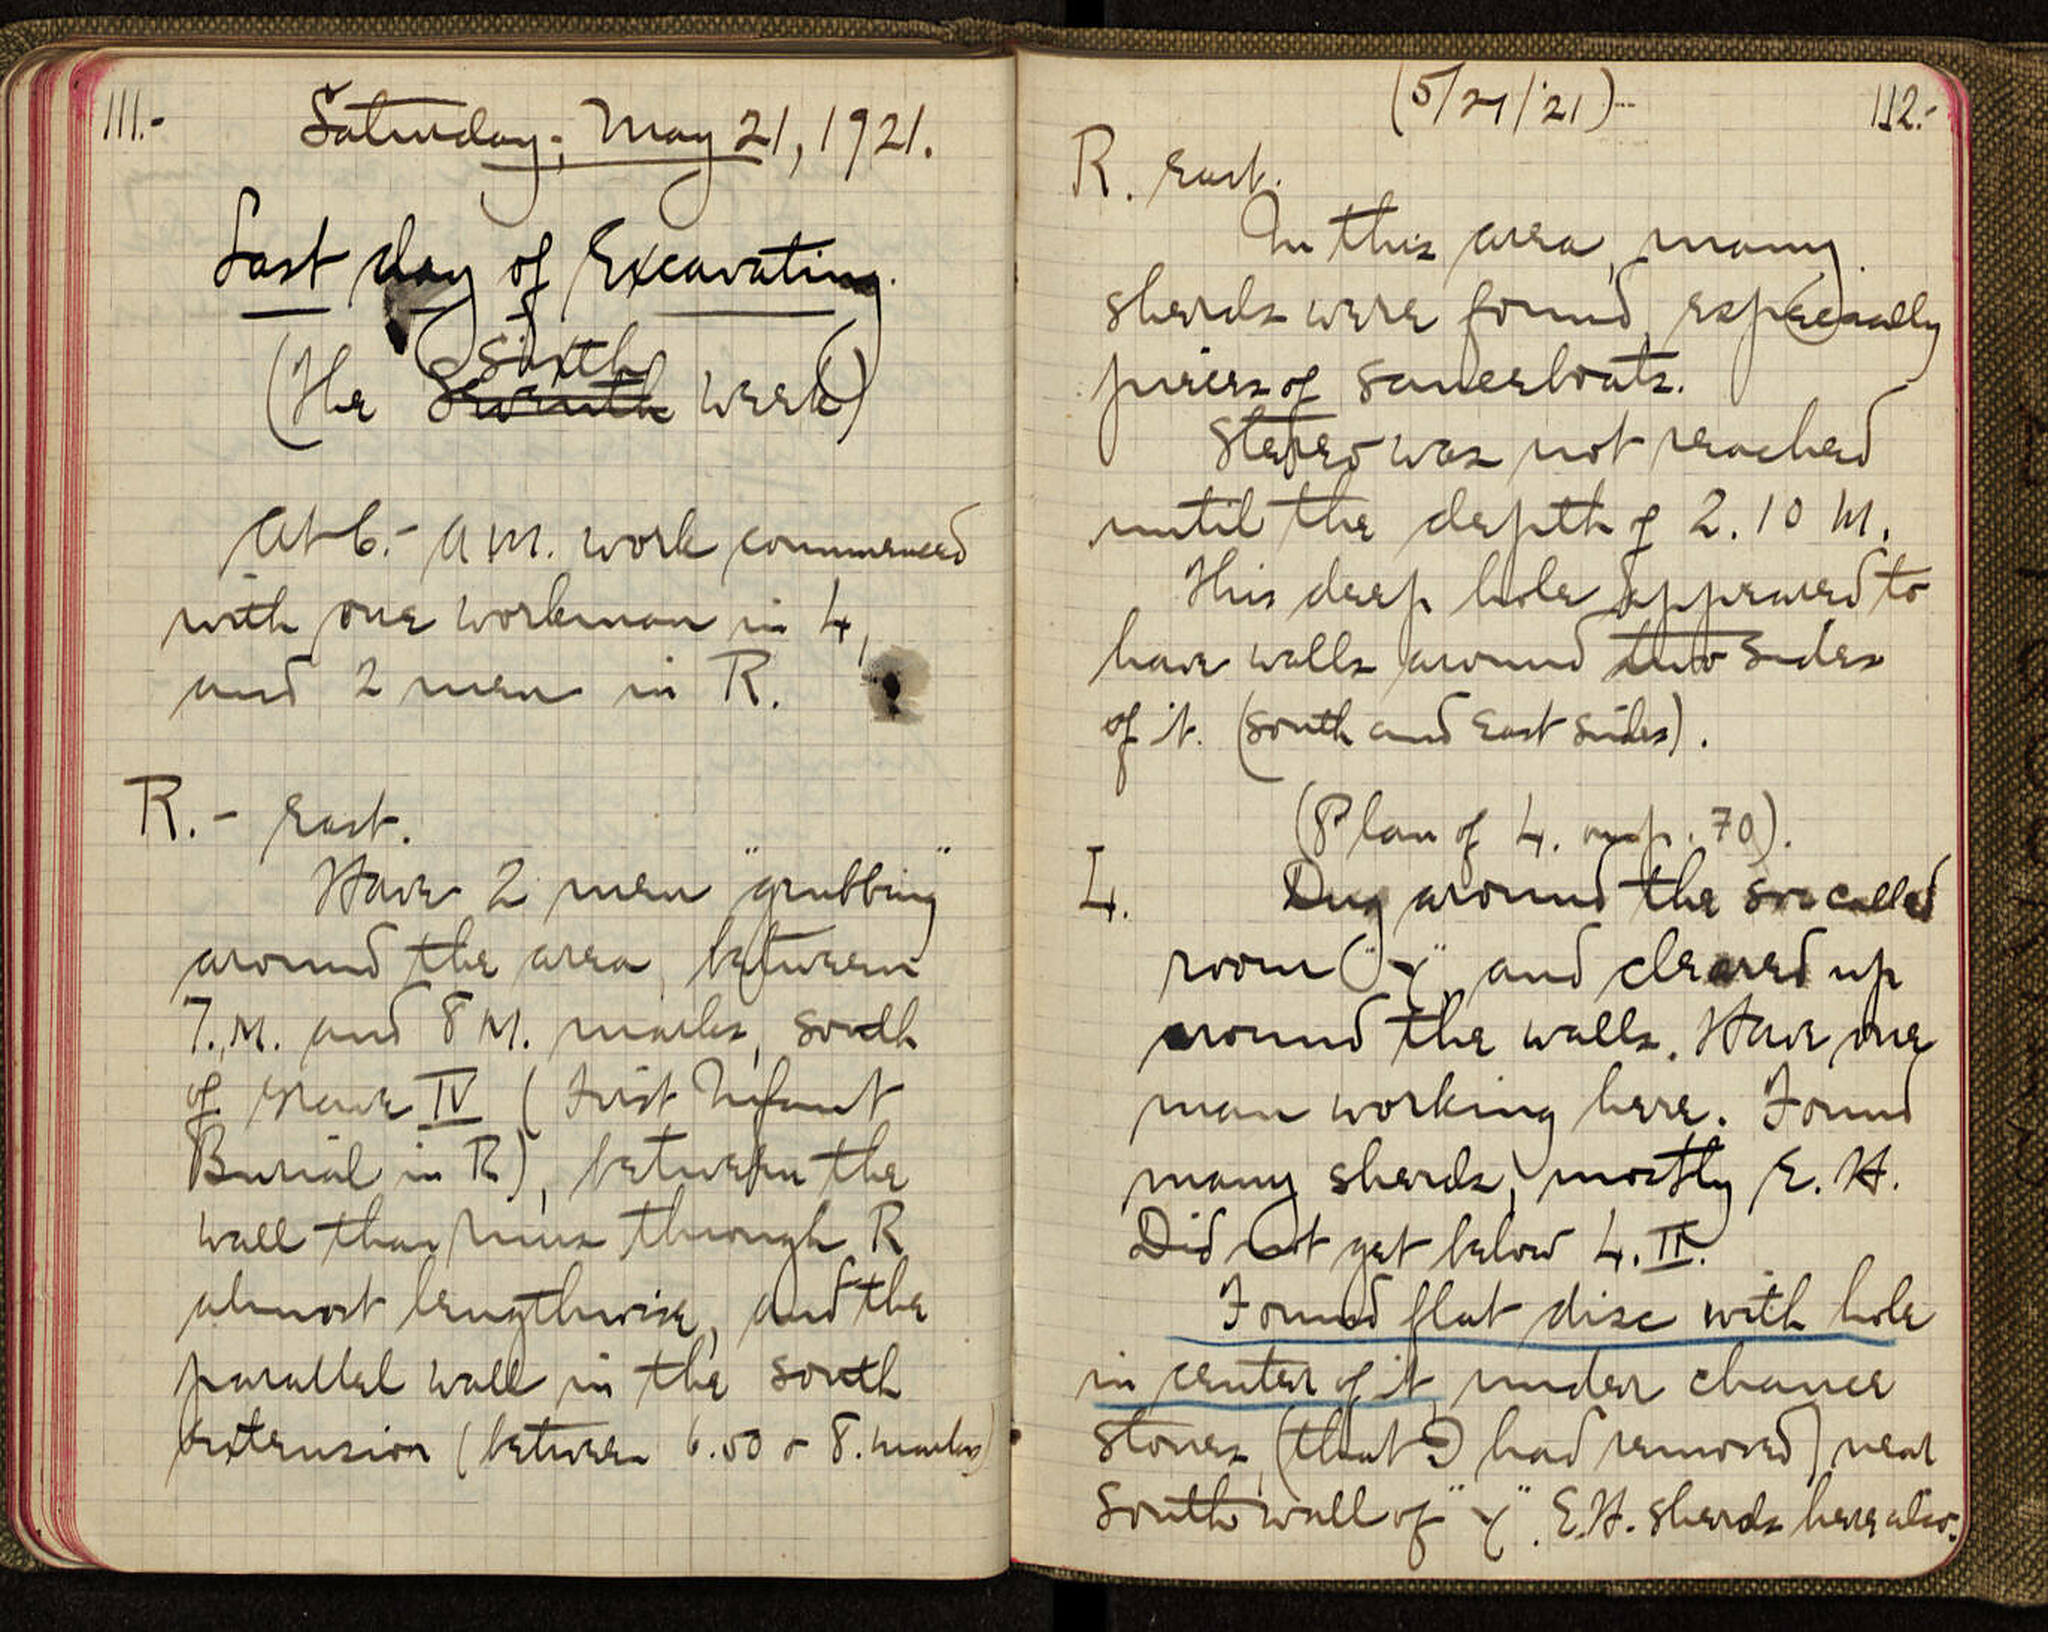 111.-
Saturday, May 21, 1921.
Last day of Excavating.
Sixth
(The Seventh week)
At 6.- A.M. work commenced
with one workman in L,
and 2 men in R.
R.- East.
Have 2 men "grubbing"
around the area, between
7.M. and 8 M. marks, south
of grave IV (First Infant
Burial in R), between the
wall that runs through R
almost lengthwise, and the
parallel wall in the south
extension (between 6.50 - 8. marks)
(5/21/'21)-
112.-
R. East.
In this area, many
sherds were found, especially
pieces of sauceboats.
Stereo was not reached
until the depth of 2.10 M.
This deep hole appeared to
have walls around two sides
of it. (South and East sides).
(Plan of L. on p. 70).
L. Dug around the so-called
room "Y" and cleared up
around the walls. Have one
man working here. Found
many sherds, mostly E.H.
Did not get below L.II.
Found flat disc with hole
in center of it, under chance
stones, (that I had removed) near
South wall of "Y". E.H. sherds here also.